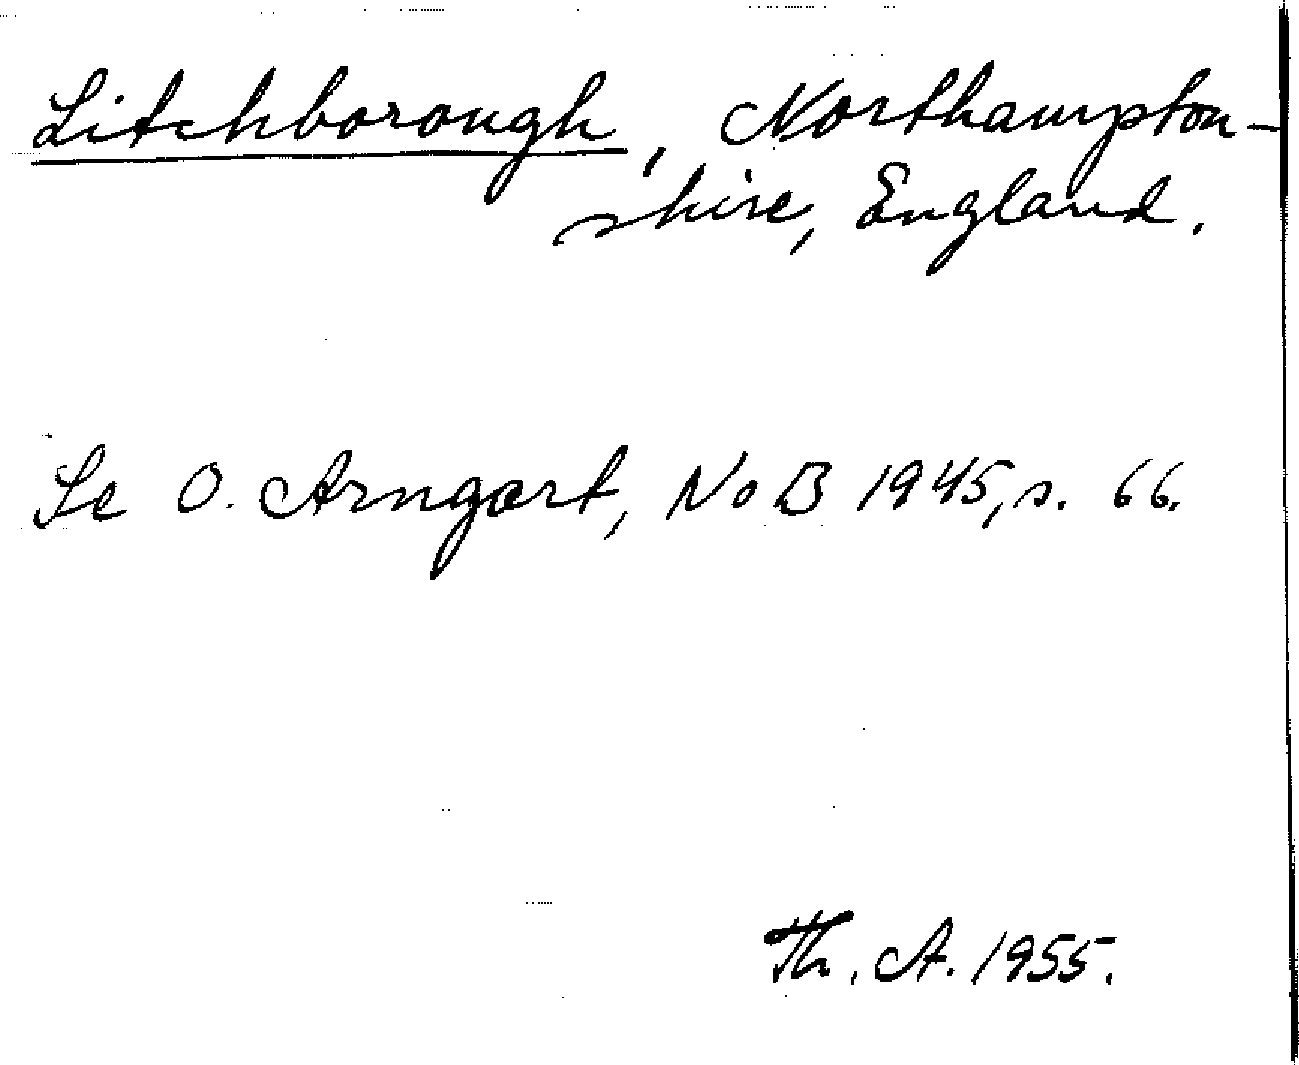 Litchborough, Northampton-
shire, England.
Se O. Arngart, NoB 1945, s. 66.
Th. A. 1955.